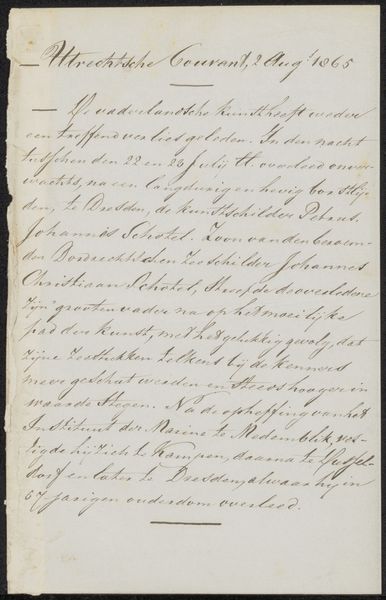 — Utrechtsche Courant, 2 Augt. 1865
— De vaderlandsche kunst heeft weder
een treffend verlies geleden. In den nacht
tusschen den 22 en 23 Julij ll. overleed onver-
wachts, na een langdurig en hevig borstlij-
den, te Dresden, de kunstschilder Petrus
Johannes Schotel. Zoon van den beroem-
den Dordrechtschen Zeeschilder Johannes
Christiaan Schotel, streefde de overledene
zijn' grooten vader na op het moeilijke
pad der kunst, met het gelukkig gevolg, dat
zijne zeestukken telkens bij de kenners
meer geschat werden en steeds hooger in
waarde stegen. Na de opheffing van het
Instituut der Marine te Medemblik, ves-
tigde hij zich te Kampen, daarna te Dussel-
dorf en later te Dresden, alwaar hij in
57 jarigen ouderdom overleed.